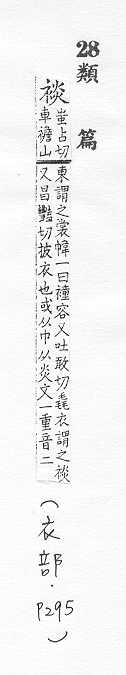 28 類篇
裧
蚩占切
車襜山
東謂之裳幃一曰褈容又吐敢切毳衣謂之裧
又昌豔切披衣也或从巾从炎文一重音二
(衣部.P295)